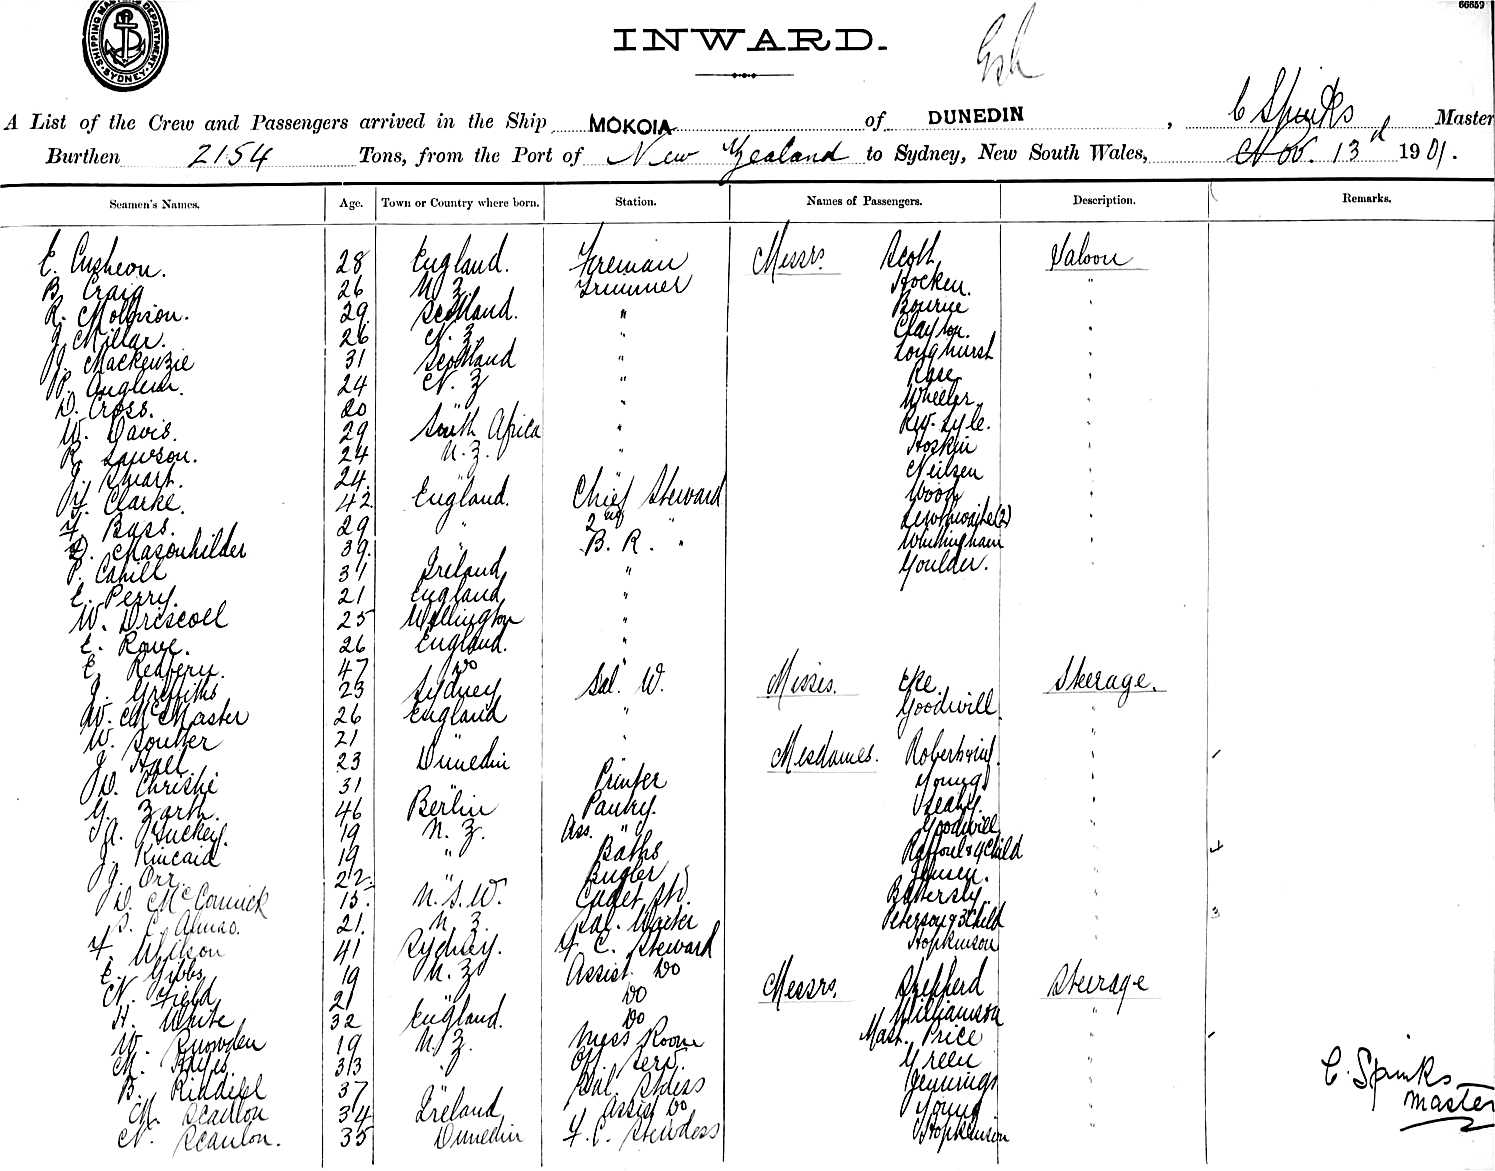 66659
SHIPPING MASTER'S DEPARTMENT. SYDNEY
INWARD.
A List of the Crew and Passengers arrived in the Ship MOKOIA of DUNEDIN, C Spinks Master
Burthen 2154 Tons, from the Port of New Zealand to Sydney, New South Wales, Nov. 13d 1901.
Seamen's Names. Age. Town or Country where born. Station. Names of Passengers. Description. Remarks.
E. Cusheon. 28 England. Fireman Messrs. Scott Saloon
B. Craig 26 N Z Trimmer Hocken. "
R. 29 Scotland. " Bourne "
J. Millar. 26 N. Z. " Clayton. "
J. Mackenzie 31 Scotland " Longhurst "
P. 24 N. Z " Rose "
D. Cross. 20 " " Wheeler "
W. Davis. 29 South Africa " Rev. Lyle. "
R. Lawson. 24 N. Z. " Hoskin "
J. Stuart. 24. " " Neilsen "
F. Clarke. 42 England. Chief Steward Wood "
F. Bass. 29 " 2nd " (2) "
D. Masonhilder 39. " B. R. " Whittingham "
P. Cahill 31 Ireland " Goulder. "
E. Perry. 21 England "
W. Driscoll 25 Wellington "
E. Rowe. 26 England. "
E. Redfern. 47 Do "
J. Griffiths 23 Sydney Sal. W. Misses. Eke Steerage.
W. McMaster 26 England " Goodwill "
W. Soutter 21 " " "
J. Hall 23 Dunedin Mesdames. "
D. Christie 31 " Printer Young "
G. Zarth. 46 Berlin Pantry. "
A. Guckey. 19 N. Z. Ass. " Goodwill "
J. Kincaid 19 " Baths Raffoul & 4 Child " 4
J. Orr 22. " Bugler Jensen. "
D. McCormick 15. N. S. W. Cadet Std. Battersby "
21. N. Z. Sal. Waiter Peterson & 3 Child " 3
F. Wilson 41 Sydney. F. C. Steward Hopkinson "
E. Gibbs 19 N. Z Assist. Do
N. Field 21 " Do Messrs. Shepherd Steerage
H. White 32 England. Do Williamson "
W. Snowden 19 N. Z. Mess Room Mast. Price "
M. Hayes 33 " Off. Serv. Green "
B. Riddell 37 " Sal. Stdess Jennings "
M. Scanlon 34 Ireland Assist Do Young "
N. Scanlon. 35 Dunedin F. C. Stewdess Hopkinson "
C. Spinks
Master